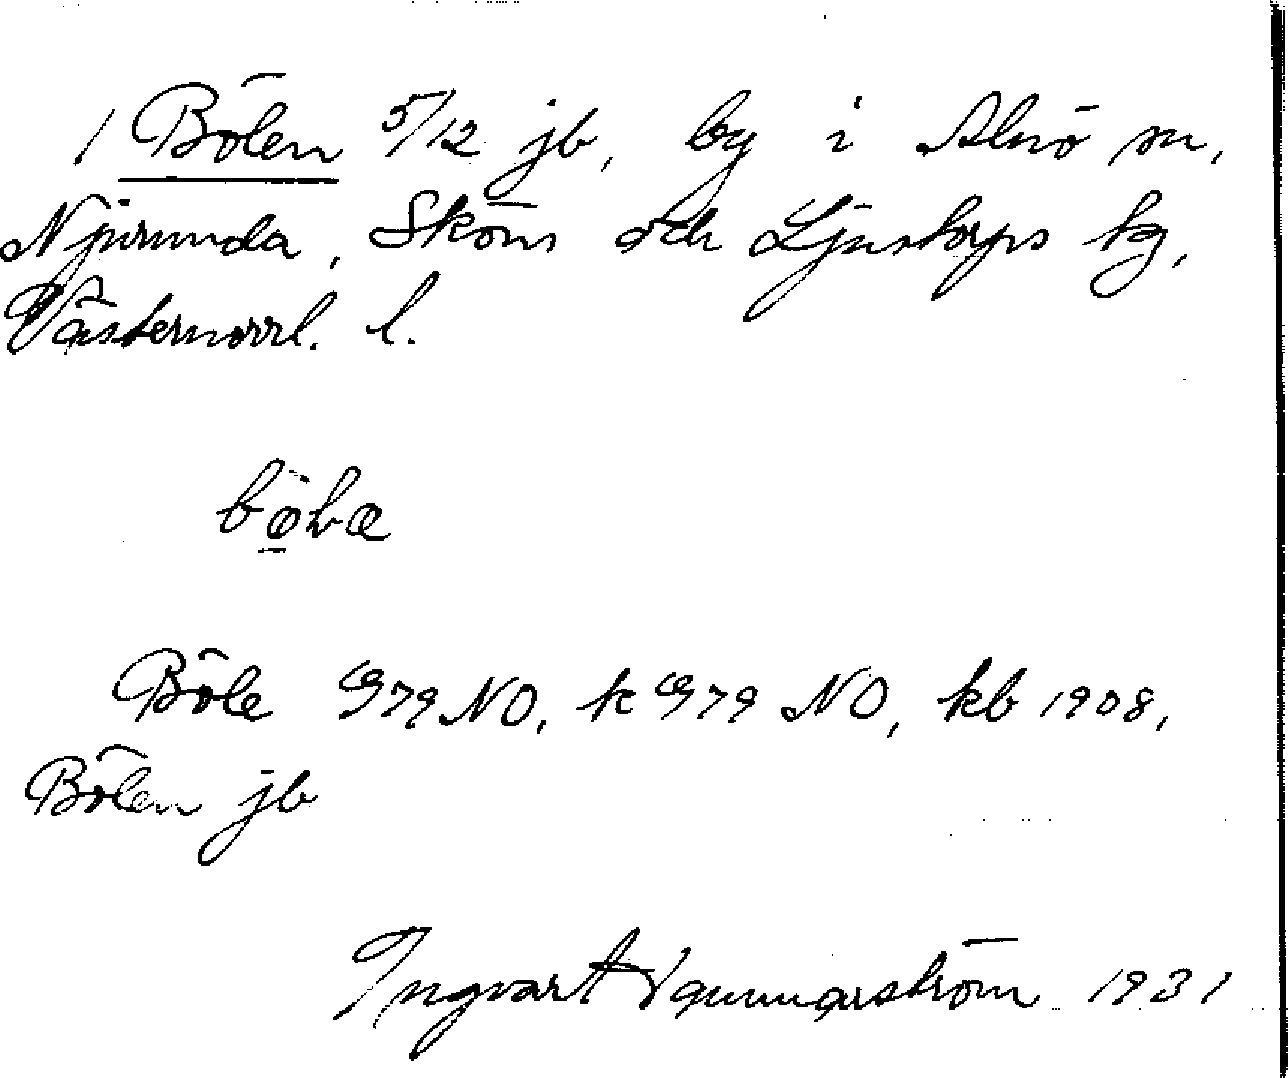 1 Bölen 5/12 jb, by i Alnö sn,
Njurunda, Sköns och Ljustorps tg,
Västernorrl. l.
Böle G79NO, k G79 NO, kb 1908,
Bölen jb
Ingvart 1931